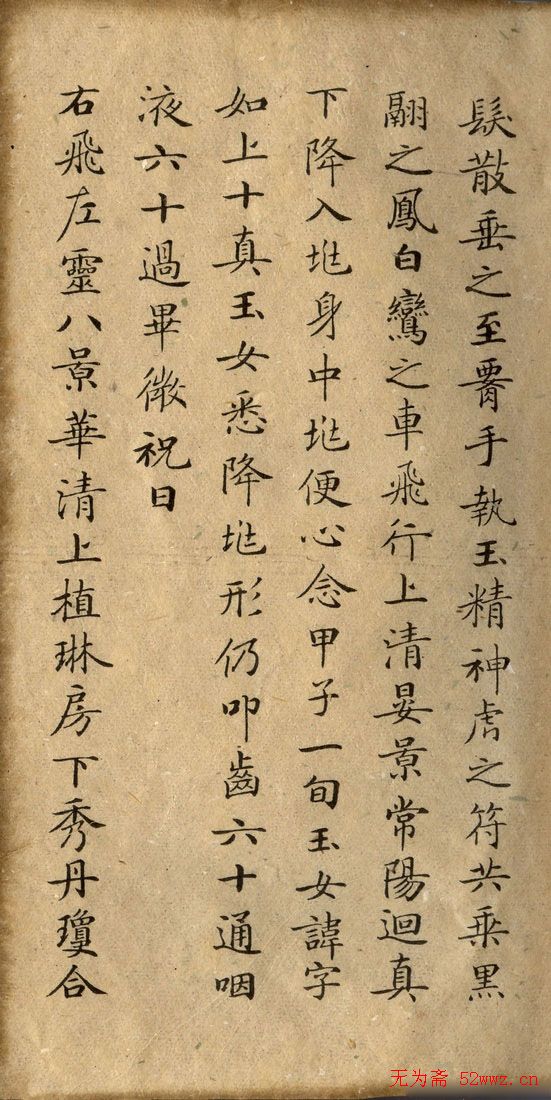 髮散垂之至署手執玉精神虎之符共乗黒
翮之鳳白鸞之車飛行上清晏景常陽迴真
下降入㘴身中㘴便心念甲子一旬玉女諱字
如上十真玉女悉降㘴形仍叩齒六十通咽
液六十過畢微祝曰
右飛左靈八景華清上植琳房下秀丹瓊合
无为斋 52wwz.cn